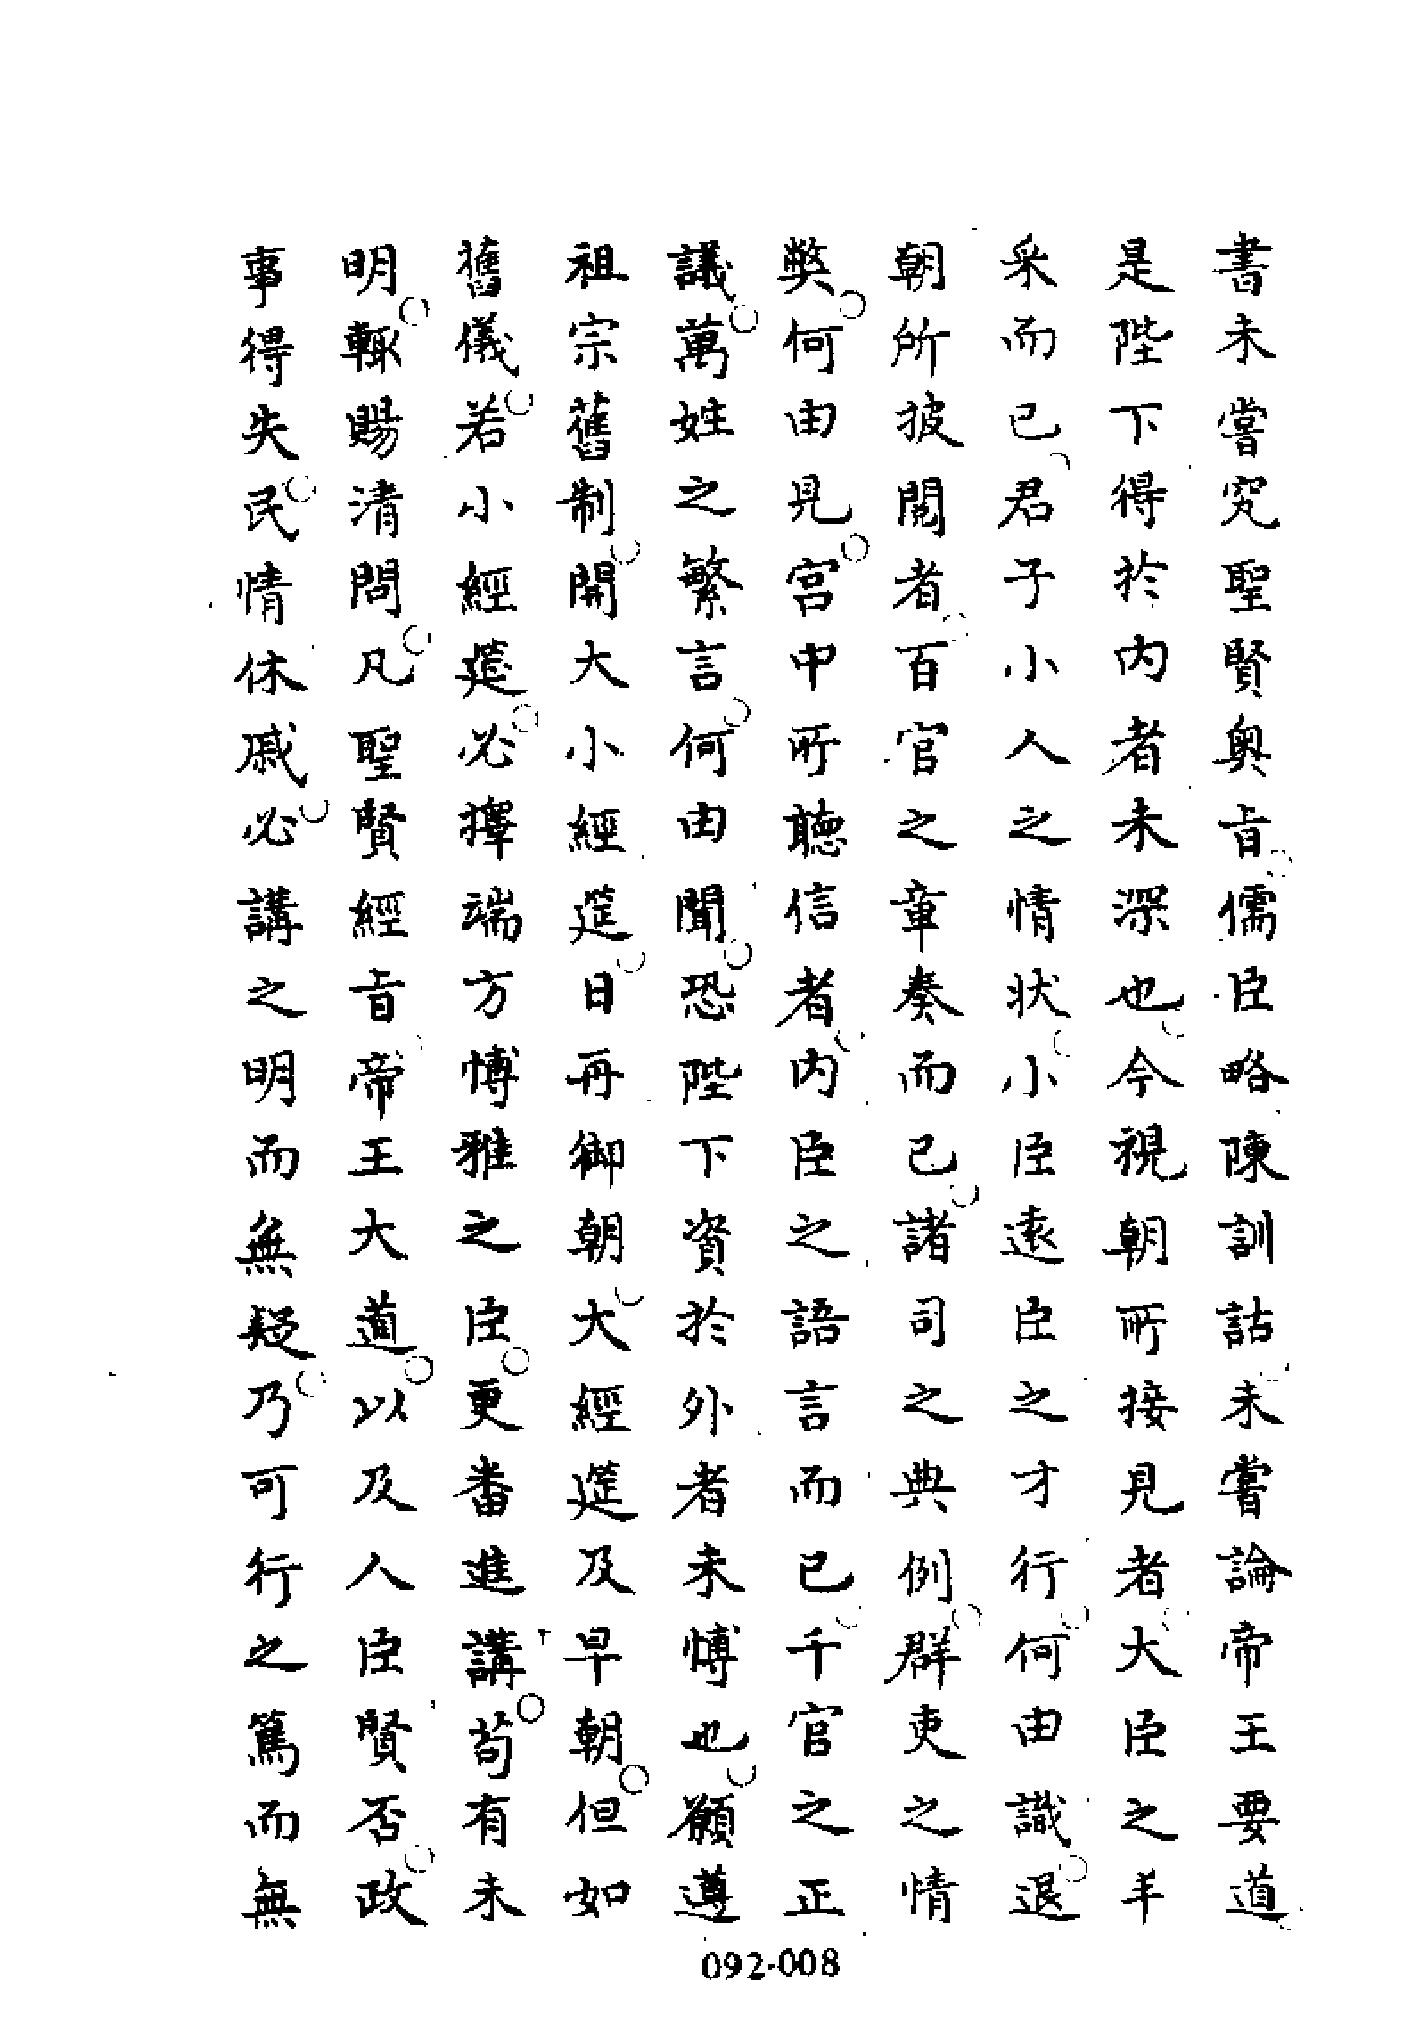 書未嘗究聖賢奥旨儒臣略陳訓詁未嘗論帝王要道
是陛下得於内者未深也今視朝所接見者大臣之丰
采而已君子小人之情状小臣遠臣之才行何由識退
朝所披閲者百官之章奏而已諸司之典例群吏之情
弊何由見宫中所聽信者内臣之語言而已千官之正
議萬姓之繁言何由聞恐陛下資於外者未博也願遵
祖宗舊制開大小經筵日再御朝大經筵及早朝但如
舊儀若小經筵必擇端方博雅之臣更番進講苟有未
明輙賜清問凡聖賢經旨帝王大道以及人臣賢否政
事得失民情休戚必講之明而無疑乃可行之篤而無
092-008